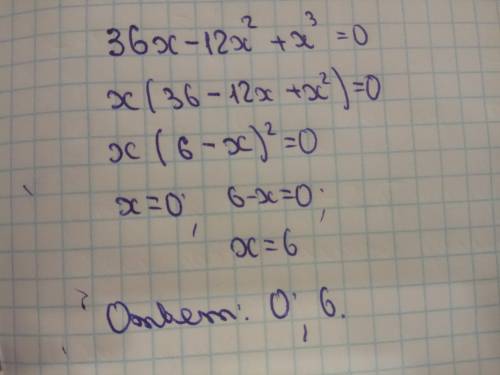 36x - 12x² + x³ = 0
x(36 - 12x + x²) = 0
x(6 - x)² = 0
x = 0; 6 - x = 0;
x = 6
Ответ: 0; 6.